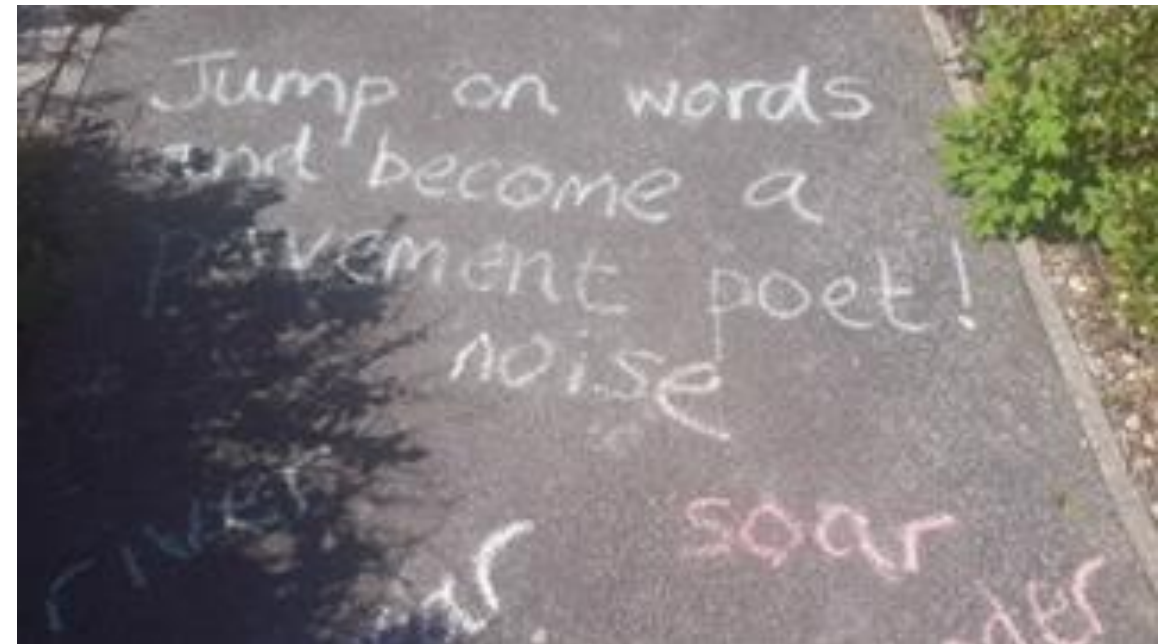 Jump on words
and become a
pavement poet!
noise
river
soar